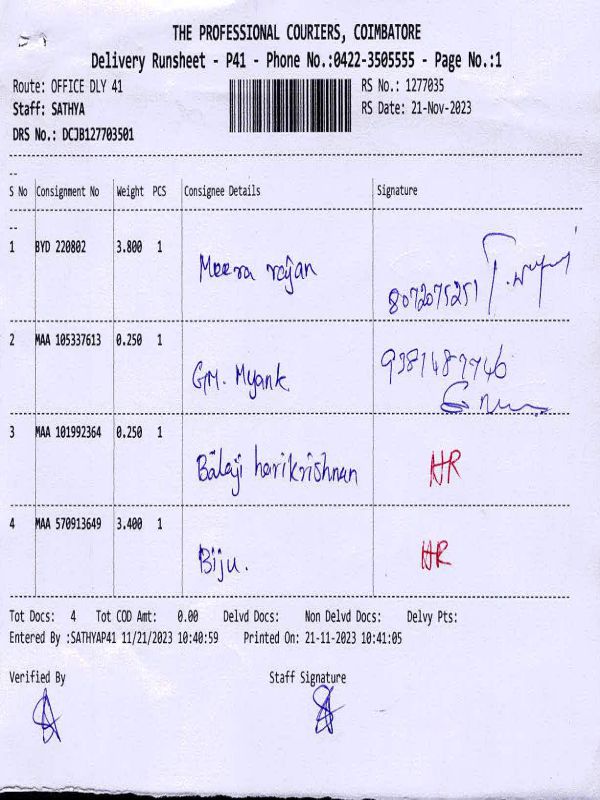 THE PROFESSIONAL COURIERS, COIMBATORE
Delivery Runsheet - P41 - Phone No.:0422-3505555 - Page No.:1
Route: OFFICE DLY 41
RS No.: 1277035
Staff: SATHYA
RS Date: 21-Nov-2023
DRS No.: DCJB127703501
--
S No Consignment No Weight PCS Consignee Details Signature
--
1 BYD 220802 3.800 1 Meera rajan 8072075251
2 MAA 105337613 0.250 1 GM. Myank 9381487746
3 MAA 101992364 0.250 1 Balaji harikrishnan HR
4 MAA 570913649 3.400 1 Biju. HR
Tot Docs: 4 Tot COD Amt: 0.00 Delvd Docs: Non Delvd Docs: Delvy Pts:
Entered By :SATHYAP41 11/21/2023 10:40:59 Printed On: 21-11-2023 10:41:05
Verified By Staff Signature